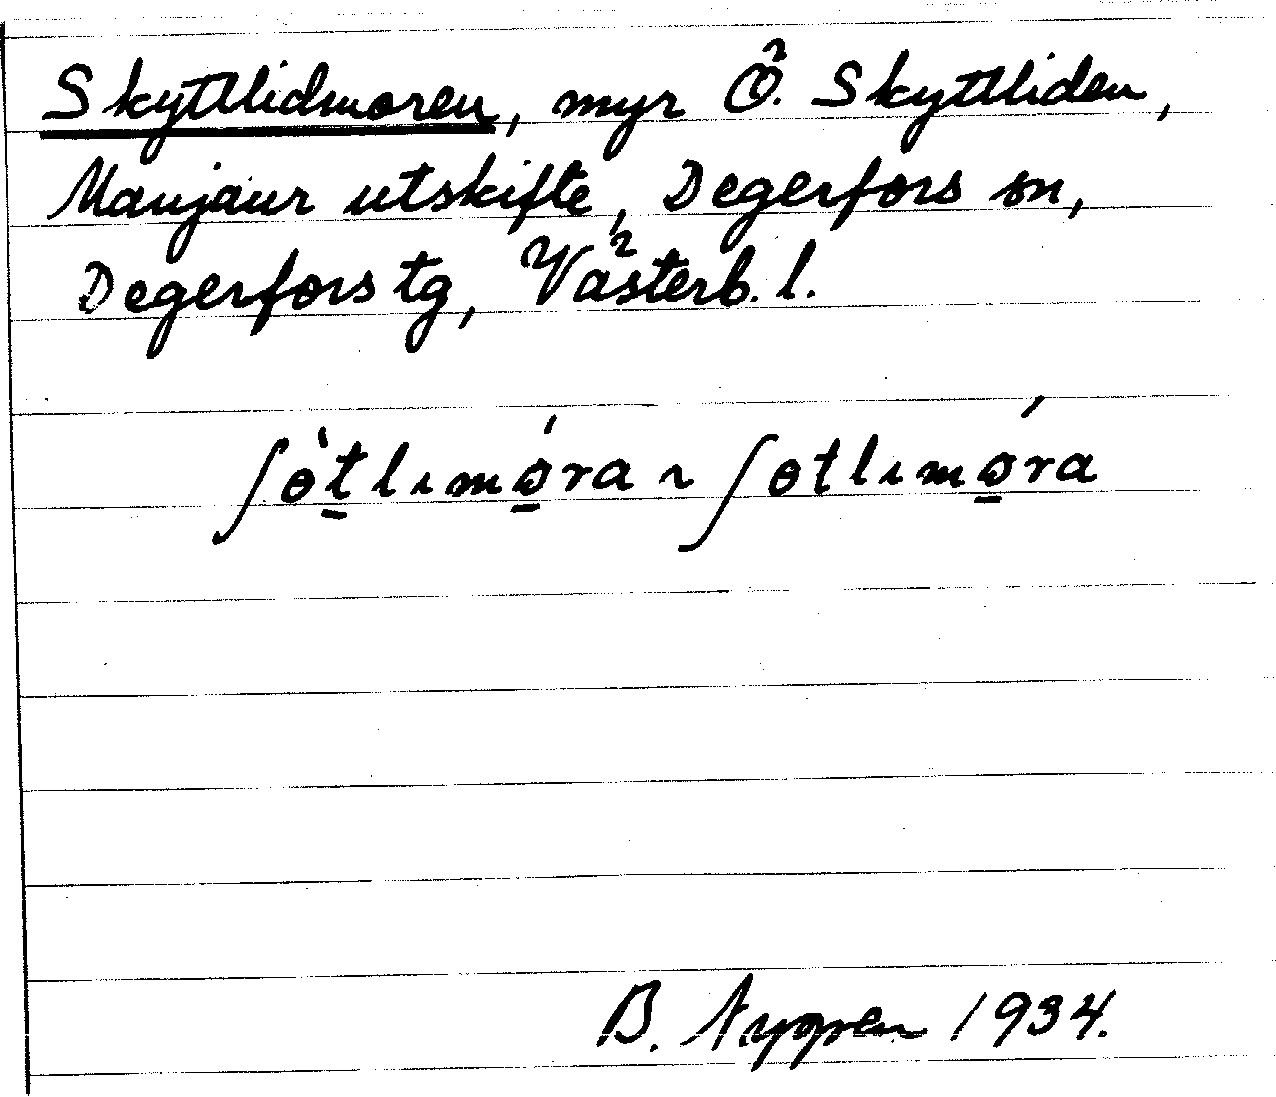 Skyttlidmoren, myr Ö. Skyttliden,
Manjaur utskifte, Degerfors sn,
Degerfors tg, Västerb. l.
ʃɵ̀t̠lımǫ́ra ~ ʃɵtlımǫ́ra
B. 1934.